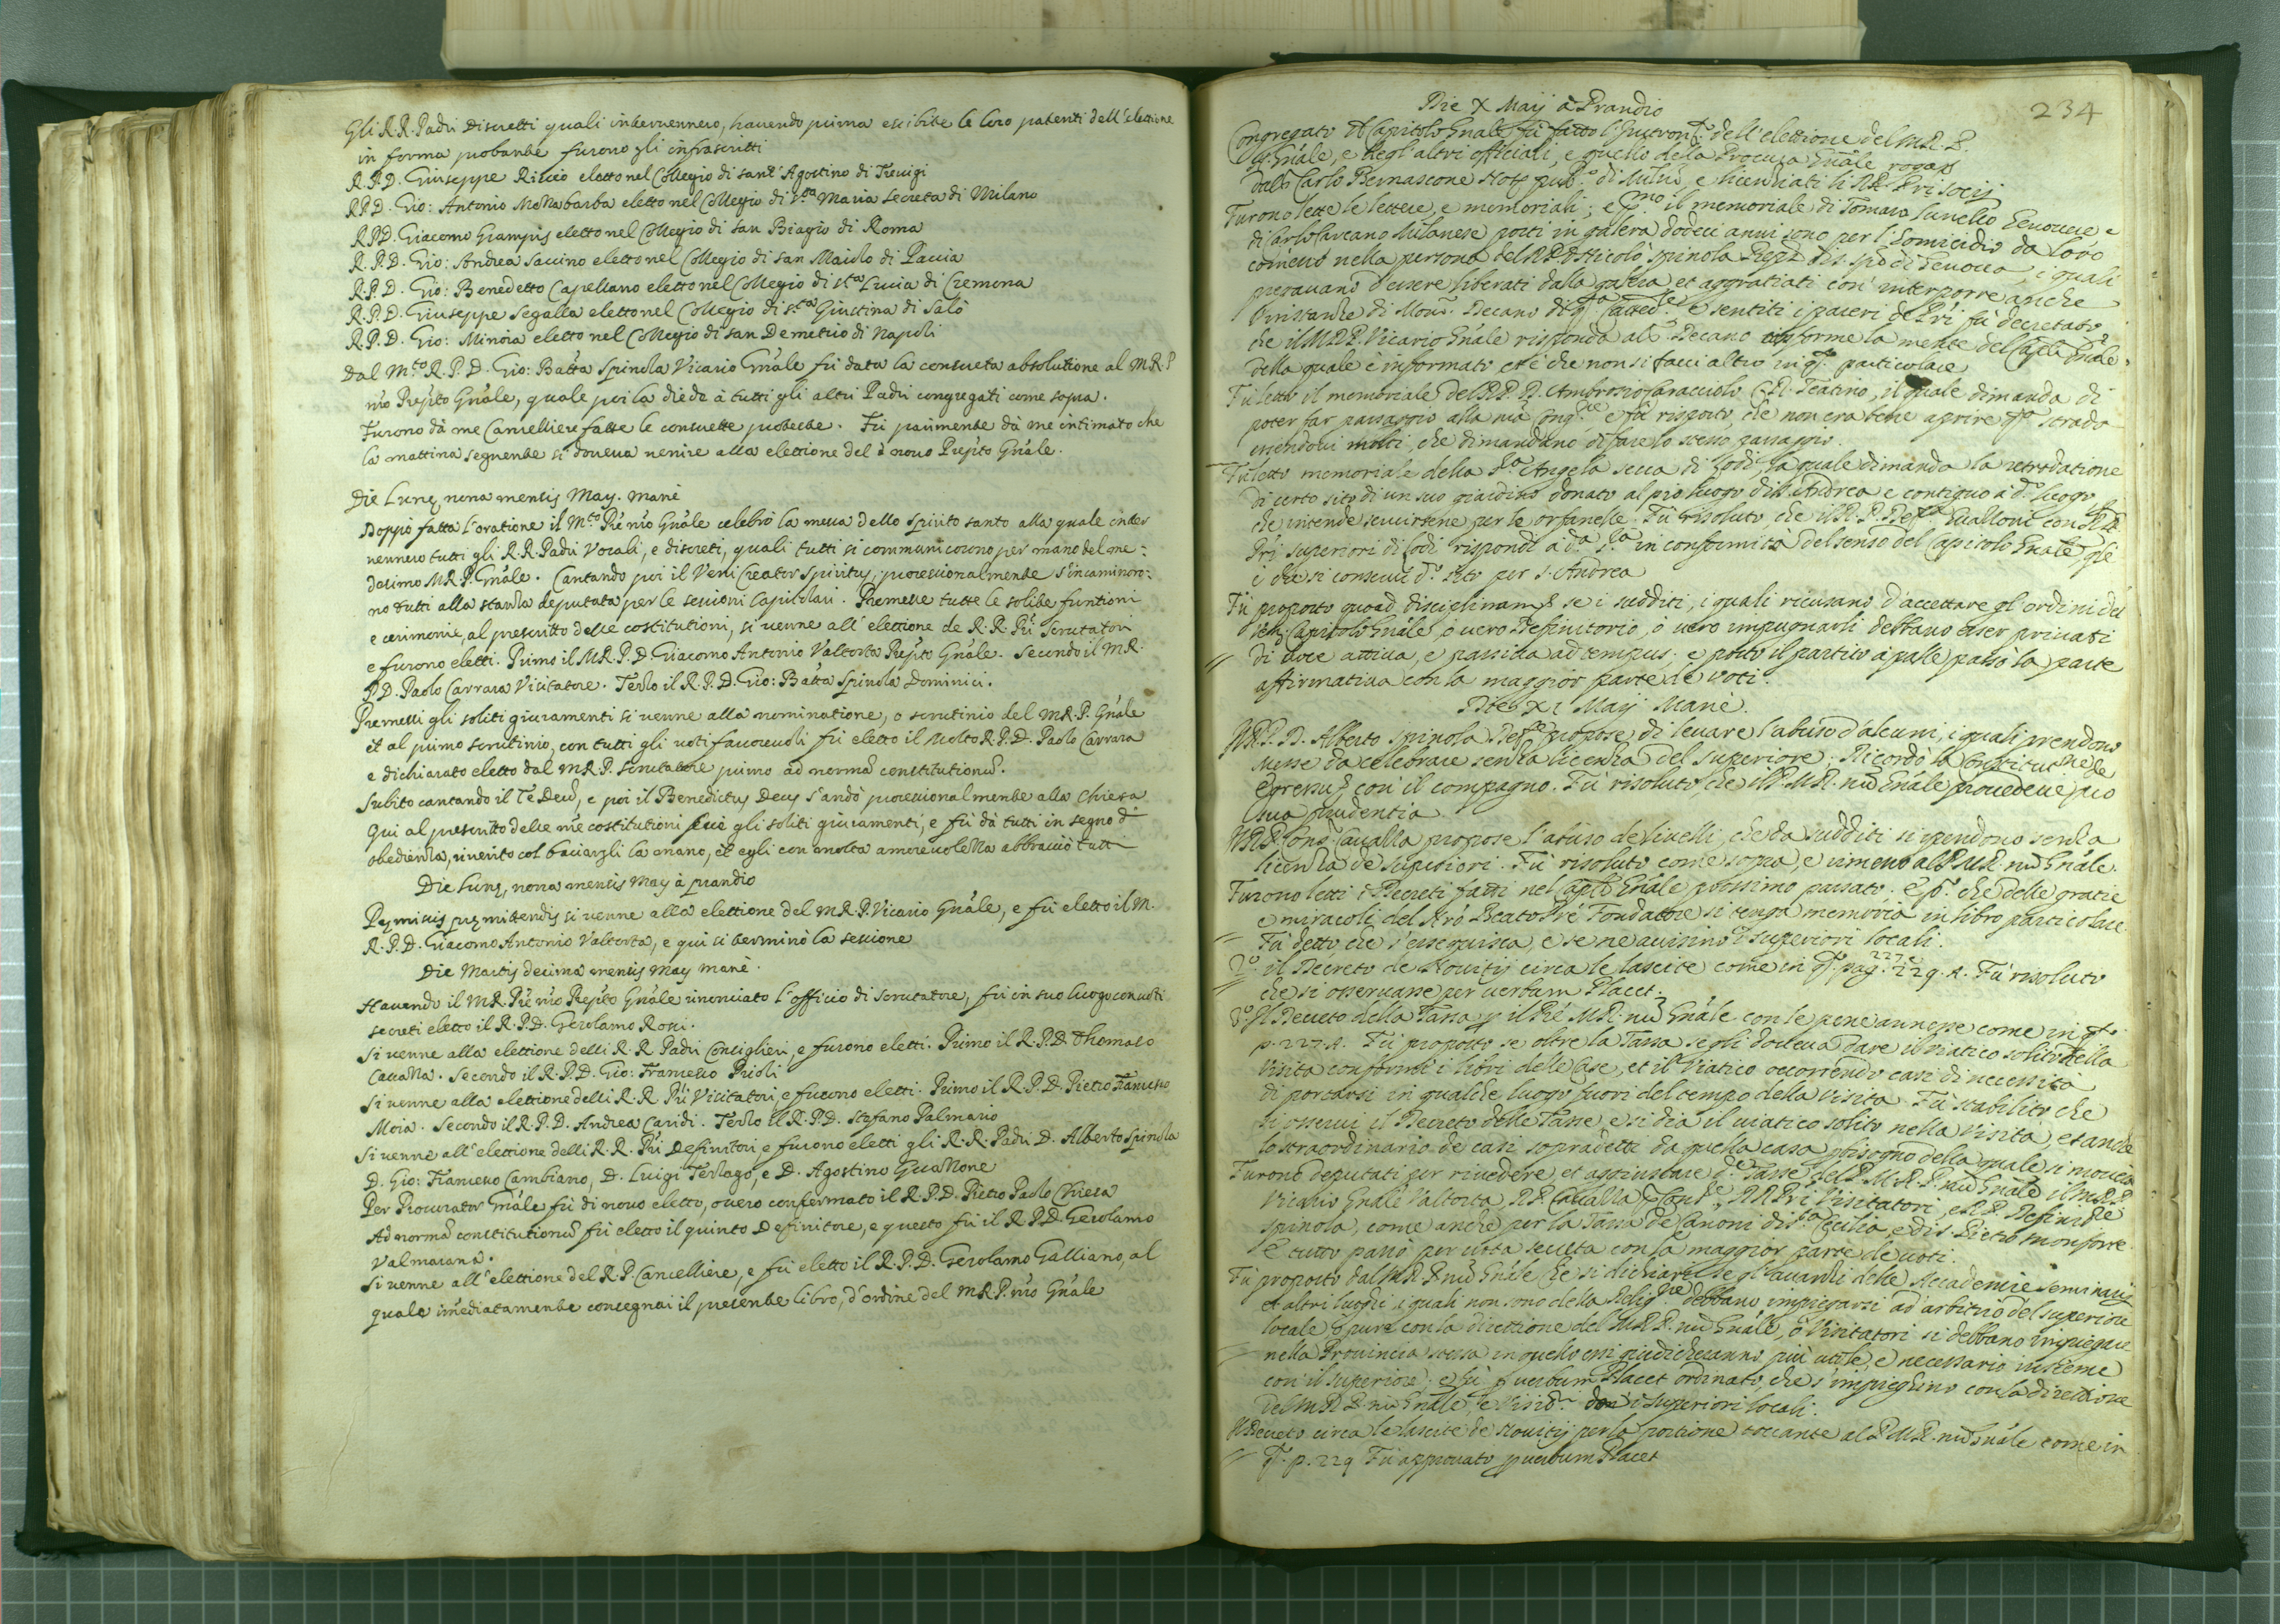 Gli R.R. Padri Discretti quali intervennero, havendo prima esibite le loro patenti dell'elettione
in forma probante furono gli infrascritti
R.P.D. Giuseppe Riccio eletto nel Collegio di sant'Agostino di Trevigi
R.P.D. Gio: Antonio Mezzabarba eletto nel Collegio di s.ta Maria secreta di Milano
R.P.D. Giacomo Giampis eletto nel Collegio di san Biagio di Roma
R.P.D. Gio: Andrea Saccino eletto nel Collegio di san Maiolo di Pavia
R.P.D. Gio: Benedetto Capellano eletto nel Collegio di s.ta Lucia di Cremona
R.P.D. Giuseppe Segalla eletto nel Collegio di s.ta Giustina di Salò
R.P.D. Gio: Minoia eletto nel Collegio di san Demetrio di Napoli
Dal M.to R.P.D. Gio: Batta Spinola Vicario Gñale fù data la consueta absolutione al M.R.P
ñro Prep̃to Gñale, quale poi la diede à tutti gli altri Padri congregati come sopra.
Furono dà me Cancelliere fatte le consuette proteste. Fù parimente dà me intimato che
la mattina seguente si doveva venire alla elettione del novo Prep̃to Gñale.
Die Lunę nona mensis May. manè
Doppò fatta l'oratione il M.to Rẽ ñro Gñale celebrò la messa dello Spirito santo alla quale inter
vennero tutti gli R.R. Padri Vocali, e discreti, quali tutti si communicorno per mano del me:
desimo M.R.P. Gñale. Cantando poi il Veni Creator Spiritus, processionalmente s'incaminoro:
no tutti alla stanza deputata per le sessioni Capitolari. Premesse tutte le solite funtioni
e cerimonie, al prescritto delle costitutioni, si venne all'elettione de R.R. Pri Scrutatori
e furono eletti. Primo il M.R.P.D. Giacomo Antonio Valtorta Prep̃to Gñale. Secondo il M.R.
P.D. Paolo Carrara Visitatore. Terzo il R.P.D. Gio: Batta Spinola Dominici.
Premessi gli soliti giuramenti si venne alla nominatione, o scrutinio del M.R.P. Gñale
et al primo scrutinio, con tutti gli voti favorevoli fù eletto il Molto R.P.D. Paolo Carrara
e dichiarato eletto dal M.R.P. Scrutatore primo ad normã constitutionũ.
Subito cantando il Te Deũ, e poi il Benedictus Deus s'andò processionalmente alla Chiesa
Qui al prescritto delle ñre costitutioni fece gli soliti giuramenti, e fù dà tutti in segno d'
obedienza, riverito col baciargli la mano, et egli con molta amorevolezza abbracciò tutti
Die Lunę, nona mensis May à prandio
Pręmissis pręmittendis si venne alla elettione del M.R.P. Vicario Gñale, e fù eletto il M.
R.P.D. Giacomo Antonio Valtorta, e qui si terminò la sessione
Die Martis decima mensis May manè.
Havendo il M.R. Prẽ ñro Prep̃to Gñale rinonciato l'officio di scrutatore, fù in suo luogo con voti
secreti eletto il R.P.D. Gerolamo Rossi.
Si venne alla elettione delli R.R. Padri Consiglieri, e furono eletti. Primo il R.P.D. Thomaso
Cavalla. Secondo il R.P.D. Gio: Francesco Prioli
Si venne alla elettione delli R.R. Pri Visitatori, e furono eletti. Primo il R.P.D. Pietro Francesco
Moia. Secondo il R.P.D. Andrea Caridi. Terzo il R.P.D. Stefano Palmario
Si venne all'elettione delli R.R. Pri Definitori, e furono eletti gli R.R. Padri D. Alberto Spinola
D. Gio: Francesco Cambiano, D. Luigi Terzago, e D. Agostino Guazzone
Per Procurator Gñale fù di novo eletto, overo confermato il R.P.D. Pietro Paolo Chiesa
Ad normã constitutionũ fù eletto il quinto Definitore, e questo fù il R.P.D. Gerolamo
Valmarana.
Si venne all'elettione del R.P. Cancelliere, e fù eletto il R.P.D. Gerolamo Galliano, al
quale im̃ediatamente consegnai il presente libro, d'ordine del M.R.P. ñro Gñale
234
Die X Maij à Prandio
Congregato il Capitolo Gñale fù fatto l'Instrom. dell'elettione del M.R.P.
Gñale, e degl'altri officiali, e quello della Procura Gñale rogato
dal S. Carlo Bernascone Not. pub.o di Milno e licentiati li RR. Pri Socij
Furono lette le lettere, e memoriali; e p.mo il memoriale di Tomaso Genovese e
di Carlo Carcano Milanese posti in galera dodeci anni sono per l'Homicidio da loro
com̃esso nella persona del R.P.D. Nicolò Spinola di Genova, i quali
pregavano d'essere liberati dalla galera et aggratiati con interporre anche
l'instanze di Mons. Decano di q.ta Catted.le e sentiti i pareri de Pri fù decretato
che il M.R.P. Vicario Gñale risponda al S. Decano conforme la mente del Capitolo Gñale,
della quale è informato et è che non si facci altro in q.to particolare
Fù letto il memoriale del R.P.D. Ambrosio Caracciolo C.R. Teatino, il quale dimanda di
poter far passaggio alla ñra Cong.ne e fù risposto, che non era bene aprire q.ta strada
essendovi molti, che dimandano di fare lo stesso passaggio.
Fù letto memoriale della S.ra Angela Secca di Lodi, la quale dimanda la retrodatione
di certo sito di un suo giardino donato al pio luogo di S. Andrea e contiguo à d.o luogo
che intende servirsene per le orfanelle. Fù risoluto che il R.P. Guazzoni con RR
Pri superiori di Lodi rispondi à d.a S.ra in conformità del senso del Capitolo Gñale
è che si conservi d.o sito per S. Andrea
Fù proposto quoad disciplinam se i sudditi, i quali ricusano d'accettare gl'ordini del
Ven. Capitolo Gñale, ò vero Definitorio, ò vero impugnarli debbano esser privati
di voce attiva, e passiva ad tempus, e posto il partito à palle passò la parte
affirmativa con la maggior parte de voti.
Die XI Maij Manè.
Il R.P.D. Alberto Spinola Def.re propose di levare l'abuso d'alcuni, i quali prendono
messe da celebrare senza licenza del superiore; Ricordò la Constitutione de
egressu con il compagno. Fù risoluto che il P.M.R. ñro Gñale provedesse pro
sua prudentia
Il R.P. Cons. Cavalla propose l'abuso de livelli, che da sudditi si spendono senza
licenza de superiori. Fù risoluto come sopra, e rimesso al P.M.R. ñro Gñale.
Furono letti i Decreti fatti nel Cap.lo Gñale prossimo passato. E p.o che delle gratie
e miracoli del ñro Beato Prẽ Fondatore si tenga memoria in libro particolare.
Fù detto che s'esseguisca, e se ne avisino i superiori locali.
2.o il Decreto de Novitij circa le lascite come in q.to pag. 227. e 229. A. Fù risoluto
che si osservasse per verbum Placet.
3.o Il Decreto della Tassa p il Prẽ M.R. ñro Gñale con le pene annesse come in q.to
p. 227. A. Fù proposto se oltre la Tassa se gli doveva dare il viatico solito nella
Visita conforme i libri delle Case, et il Viatico occorrendo casi di necessità
di portarsi in qualche luogo fuori del tempo della Visita. Fù stabilito che
si osservi il Decreto delle Tasse e si dia il viatico solito nella Visita, et anche
lo straordinario de casi sopradetti da quella casa p bisogno della quale si moverà
Furono deputati per rivedere, et aggiustare d.e Tasse del P.M.R.P. ñro Gñale il M.R.P.
Vicario Gñale Valtorta, R.P. Cavalla Cons.re, RR Pri Visitatori, e R.P. Definit.re
Spinola, come anche per la Tassa de Canoni di S.ta Cecilia, e di S. Pietro Monforte.
E tutto passò per vota secreta con la maggior parte de voti.
Fù proposto dal M.R.P. ñro Gñale che si dichiari se gl'avanzi delle Accademie Seminarij
et altri luoghi i quali non sono della Relig.ne debbano impiegarsi ad arbitrio del superiore
locale, ò pure con la direttione del M.R.P. ñro Gñale, ò Visitatori si debbano impiegare
nella Provincia stessa in quello essi giudicheranno più utile, e necessario insieme
con il superiore; e fù p verbum Placet ordinato, che s'impieghino con la direttione
del M.R.P. ñro Gñale, e Visit.ri con i superiori locali.
Il Decreto circa le lascite de Novitij per la portione toccante al P.M.R. ñro Gñale come in
q.to p. 229 Fù approvato p verbum Placet